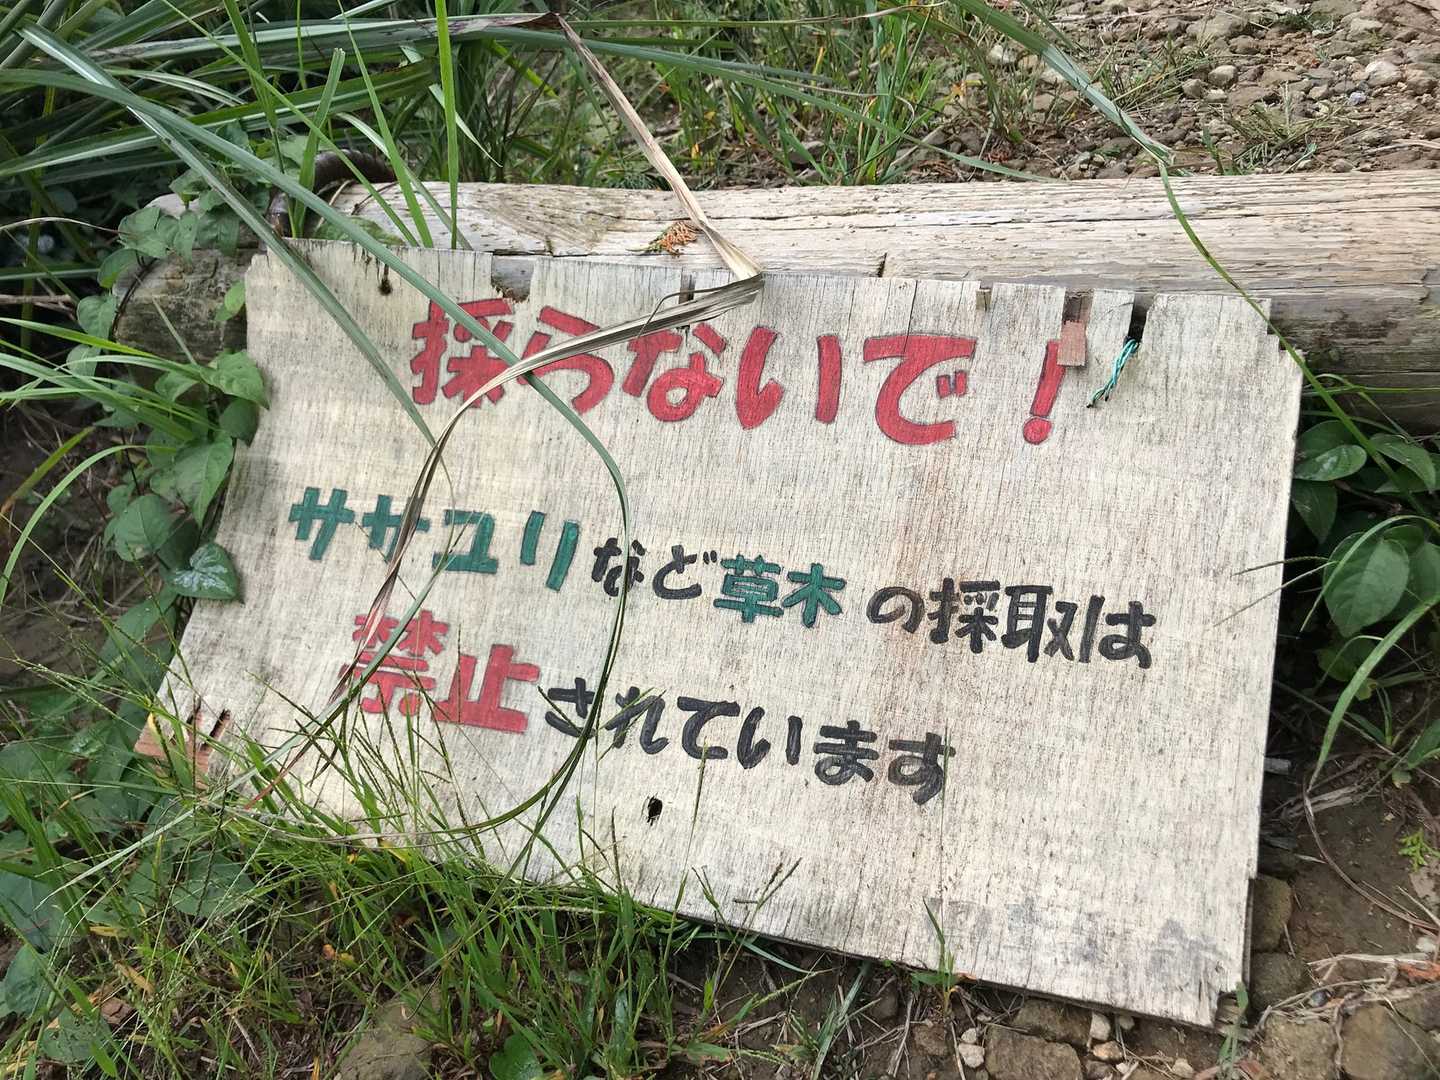 採らないで！
ササユリなど草木の採取は
禁止されています